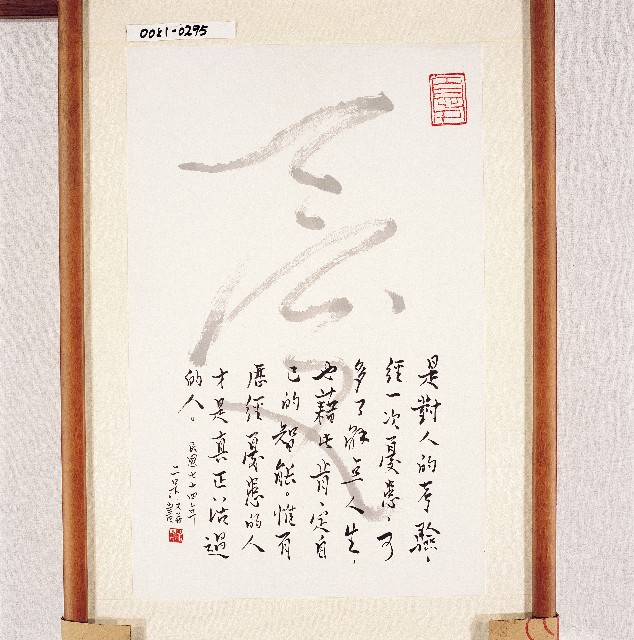 0081-0295
憂
是對人的考驗，
經一次憂患，可
多了解点人生，
也藉此肯定自
己的智能。惟有
歷經憂患的人
才是真正活過
的人。
民國七十四年
二呆